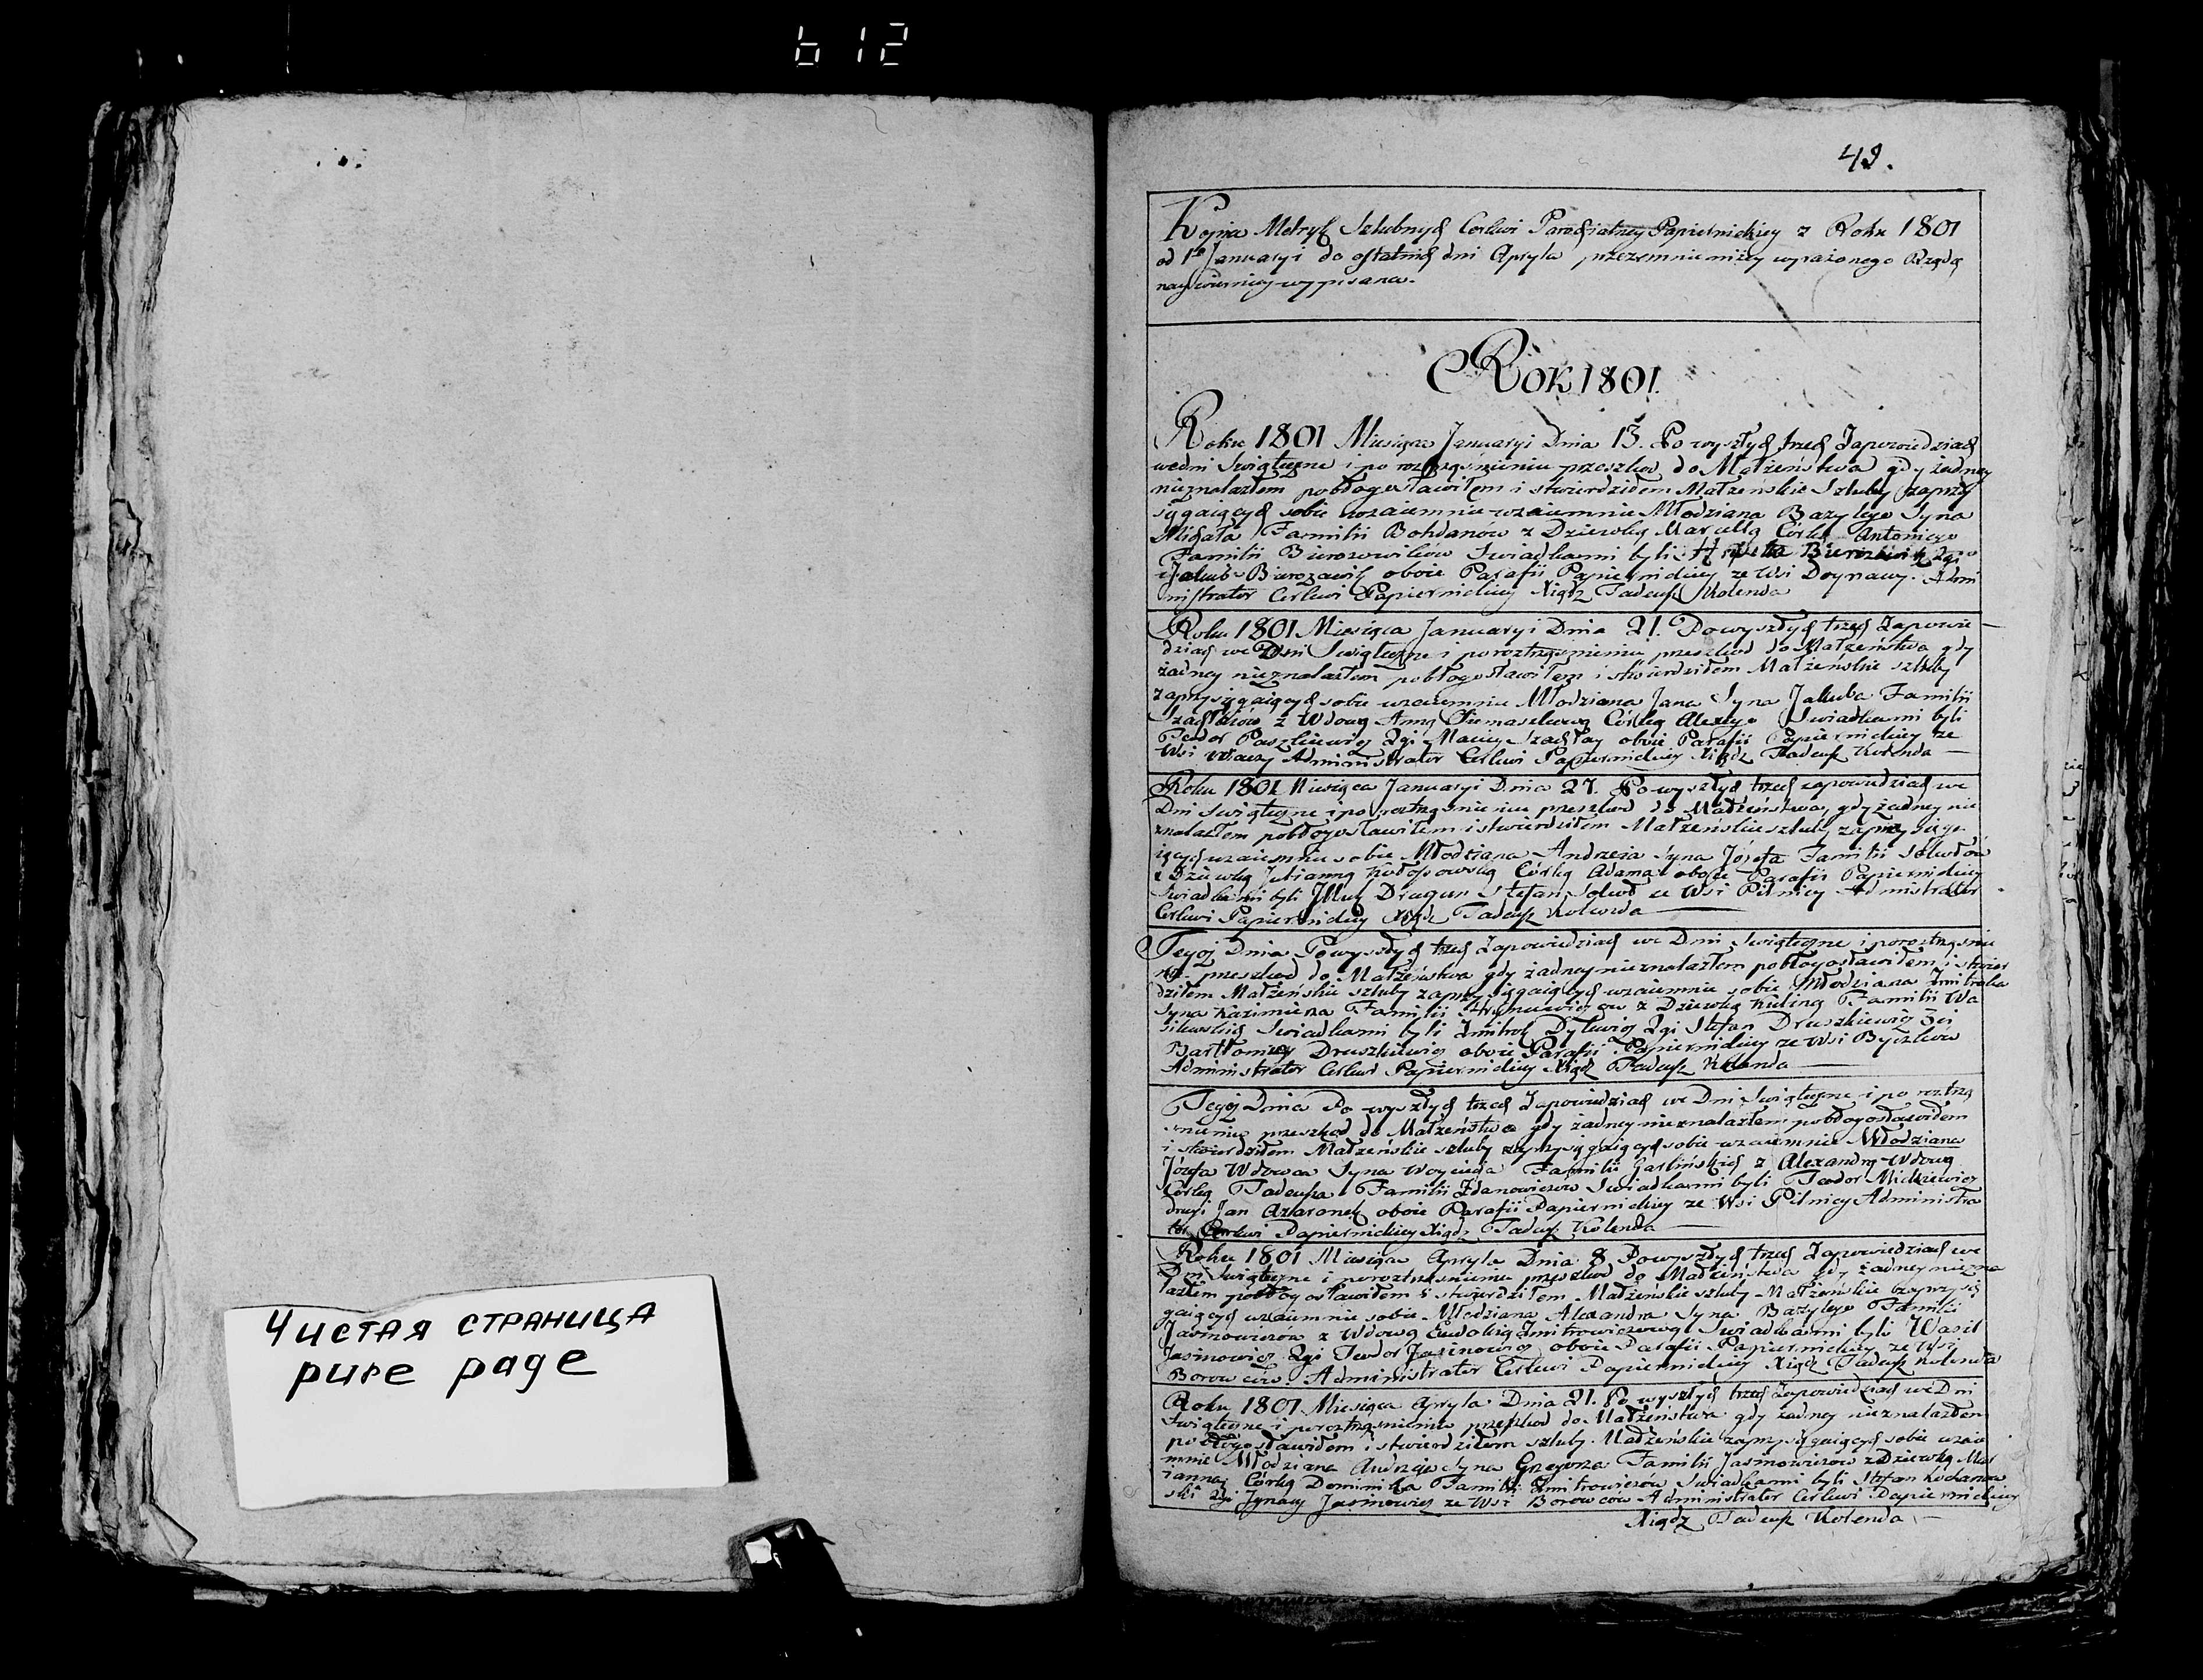 612
49.
Kopia Metryk Szlubnych Cerkwi Parochialney Papiernickiey z Roku 1801
od 1go Januaryi do ostatnich dni Apryla przezemnie niżey wyrażonego Rządcę
naywierniey wypisana.
Rok 1801.
Roku 1801 Miesiąca Januaryi Dnia 13. Po wyszłych trzech Zapowiedziach
we dni Swiąteczne i po roztrząsnieniu przeszkod do Małżeństwa gdy żadney
nieznalazłem pobłogosławiłem i stwierdziłem Małżeńskie Szluby zaprzy
sięgaiących sobie wzaiemnie wzaiemnie Młodziana Bazylego Syna
Michała Familii Bohdanów z Dziewką Marcellą Córką Antoniego
Familii Swiadkami byli
Jakub oboie Parafii Papiernickiey ze Wsi Doynawy. Admi
nistrator Cerkwi Papiernickiey Xiądz Tadeusz Kolenda
Roku 1801 Miesiąca Januaryi Dnia 21. Po wyszłych trzech Zapowie
dziach we Dni Swiąteczne i po roztrząsnieniu przeszkod do Małżeństwa gdy
żadney nieznalazłem pobłogosławiłem i stwierdziłem Małżeńskie szluby
zaprzysięgaiących sobie wzaiemnie Młodziana Jana Syna Jakuba Familii
z Wdową Anną Córką Alexego Swiadkami byli
Teodor Paszkiewicz 2gi Maciey oboie Parafii Papiernickiey ze
Wsi Administrator Cerkwi Papiernickiey Xiądz Tadeusz Kolenda
Roku 1801 Miesiąca Januaryi Dnia 27. Po wyszłych trzech zapowiedziach we
Dni Swiąteczne i po roztrząsnieniu przeszkod do Małżeństwa, gdy żadney nie
znalazłem pobłogosławiłem i stwierdziłem Małżeńskie szluby zaprzysięga
iących wzaiemnie sobie Młodziana Andrzeia Syna Józefa Familii
z Dziewką Julianną Kołosowską Córką Adama oboie Parafii Papiernickiey
Swiadkami byli Dragun Stefan ze Wsi Pilnicy Administrator
Cerkwi Papiernickiey Xiądz Tadeusz Kolenda
Tegoż Dnia Po wyszłych trzech Zapowiedziach we Dni Swiąteczne i po roztrząsnie
niu przeszkod do Małżeństwa gdy żadney nieznalazłem pobłogosławiłem i stwier
dziłem Małżeńskie szluby zaprzysięgaiących wzaiemnie sobie Młodziana Zmitroka
Syna Kazimierza Familii z Dziewką Familii Wa
silewskich Swiadkami byli Zmitrok Dylewicz 2gi Stefan Druszkiewicz 3ci
Bartłomiey Druszkiewicz oboie Parafii Papiernickiey ze Wsi
Administrator Cerkwi Papiernickiey Xiądz Tadeusz Kolenda
Tegoż Dnia Po wyszłych trzech Zapowiedziach we Dni Swiąteczne i po roztrzą
snieniu przeszkod do Małżeństwa gdy żadney nieznalazłem pobłogosławiłem
i stwierdziłem Małżeńskie szluby zaprzysięgaiących sobie wzaiemnie Młodziana
Józefa Wdowca Syna Woyciecha Familii Garlińskich z Alexandrą Wdową
Córką Tadeusza Familii Zdanowiczów Swiadkami byli Teodor Mickiewicz
drugi Jan Azaronek oboie Parafii Papiernickiey ze Wsi Pilnicy Administra
tor Cerkwi Papiernickiey Xiądz Tadeusz Kolenda
Roku 1801 Miesiąca Apryla Dnia 8 Po wyszłych trzech Zapowiedziach we
Dni Swiąteczne i po roztrząsnieniu przeszkod do Małżeństwa gdy żadney niezna
lazłem pobłogosławiłem i stwierdziłem Małżeńskie szluby Małżeńskie zaprzysię
gaiących wzaiemnie sobie Młodziana Alexandra Syna Bazylego Familii
Jasinowiczow z Wdową Eudokią Zmitrowiczową Swiadkami byli Wasil
Jasinowicz 2gi Teodor Jasinowicz oboie Parafii Papiernickiey ze Wsi
Borowców. Administrator Cerkwi Papiernickiey Xiądz Tadeusz Kolenda
Roku 1801 Miesiąca Apryla Dnia 21. Po wyszłych trzech Zapowiedziach we Dni
Swiąteczne i po roztrząsnieniu przeszkod do Małżeństwa gdy żadney nieznalazłem
pobłogosławiłem i stwierdziłem szluby Małżeńskie zaprzysięgaiących sobie wzaie
mnie Młodziana Andrzeja Syna Grzegorza Familii Jasinowiczow z Dziewką Mar
ianną Córką Dominika Familii Zmitrowiczów Swiadkami byli Stefan Kochanow
ski 2gi Jgnacy Jasinowicz ze Wsi Borowców Administrator Cerkwi Papiernickiey
Xiądz Tadeusz Kolenda
Чистая страница
pure page